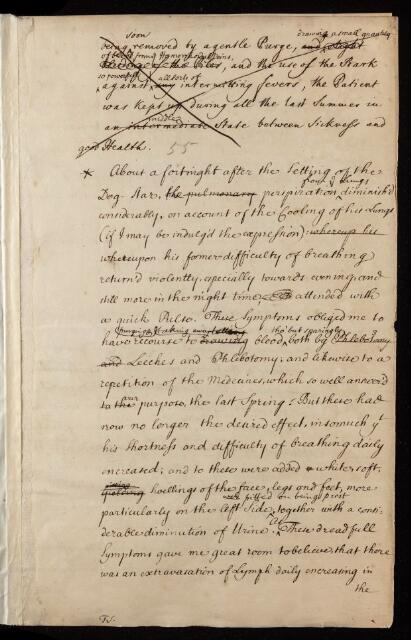 soon drawing a small quantity
being removed by a gentle Purge, and slight
of blood from Hæmorrhoid Veins,
Bleedings of the Piles, and the use of the Bark
so powerfull all sorts of
against any intermitting fevers, the Patient
was kept up during all the last Summer in
middle
an intermediate State between Sickness and
good Health. 55
* About a fortnight after the Setting of the
Dog-Star, the pulmonary perspiration, diminish'd
considerably, on account of the Cooling of his Lungs
(if I may be indulg'd the expression) whereup his
whereupon his former difficulty of breathing
return'd violently, especially towards evening, and
still more in the night time, attended with
a quick Pulse. These Symptoms obliged me to
tho' but sparingly
have recourse to drawing blood, both by Phlebotomy
and Leeches and Phlebotomy; and likewise to a
repetition of the Medecines, which so well answer'd
our
to the purpose, the last Spring: But these had
now no longer the desired effect, insomuch yt
his shortness and difficulty of breathing daily
encreased; and to these were added white, soft,
yielding swellings of the face, legs and feet, more
wch pitted on being prest
particularly on the left Side, together with a consi-
derable diminution of Urine. These dreadfull
Symptoms gave me great room to believe, that there
was an extravasation of Lymph daily encreasing in
the